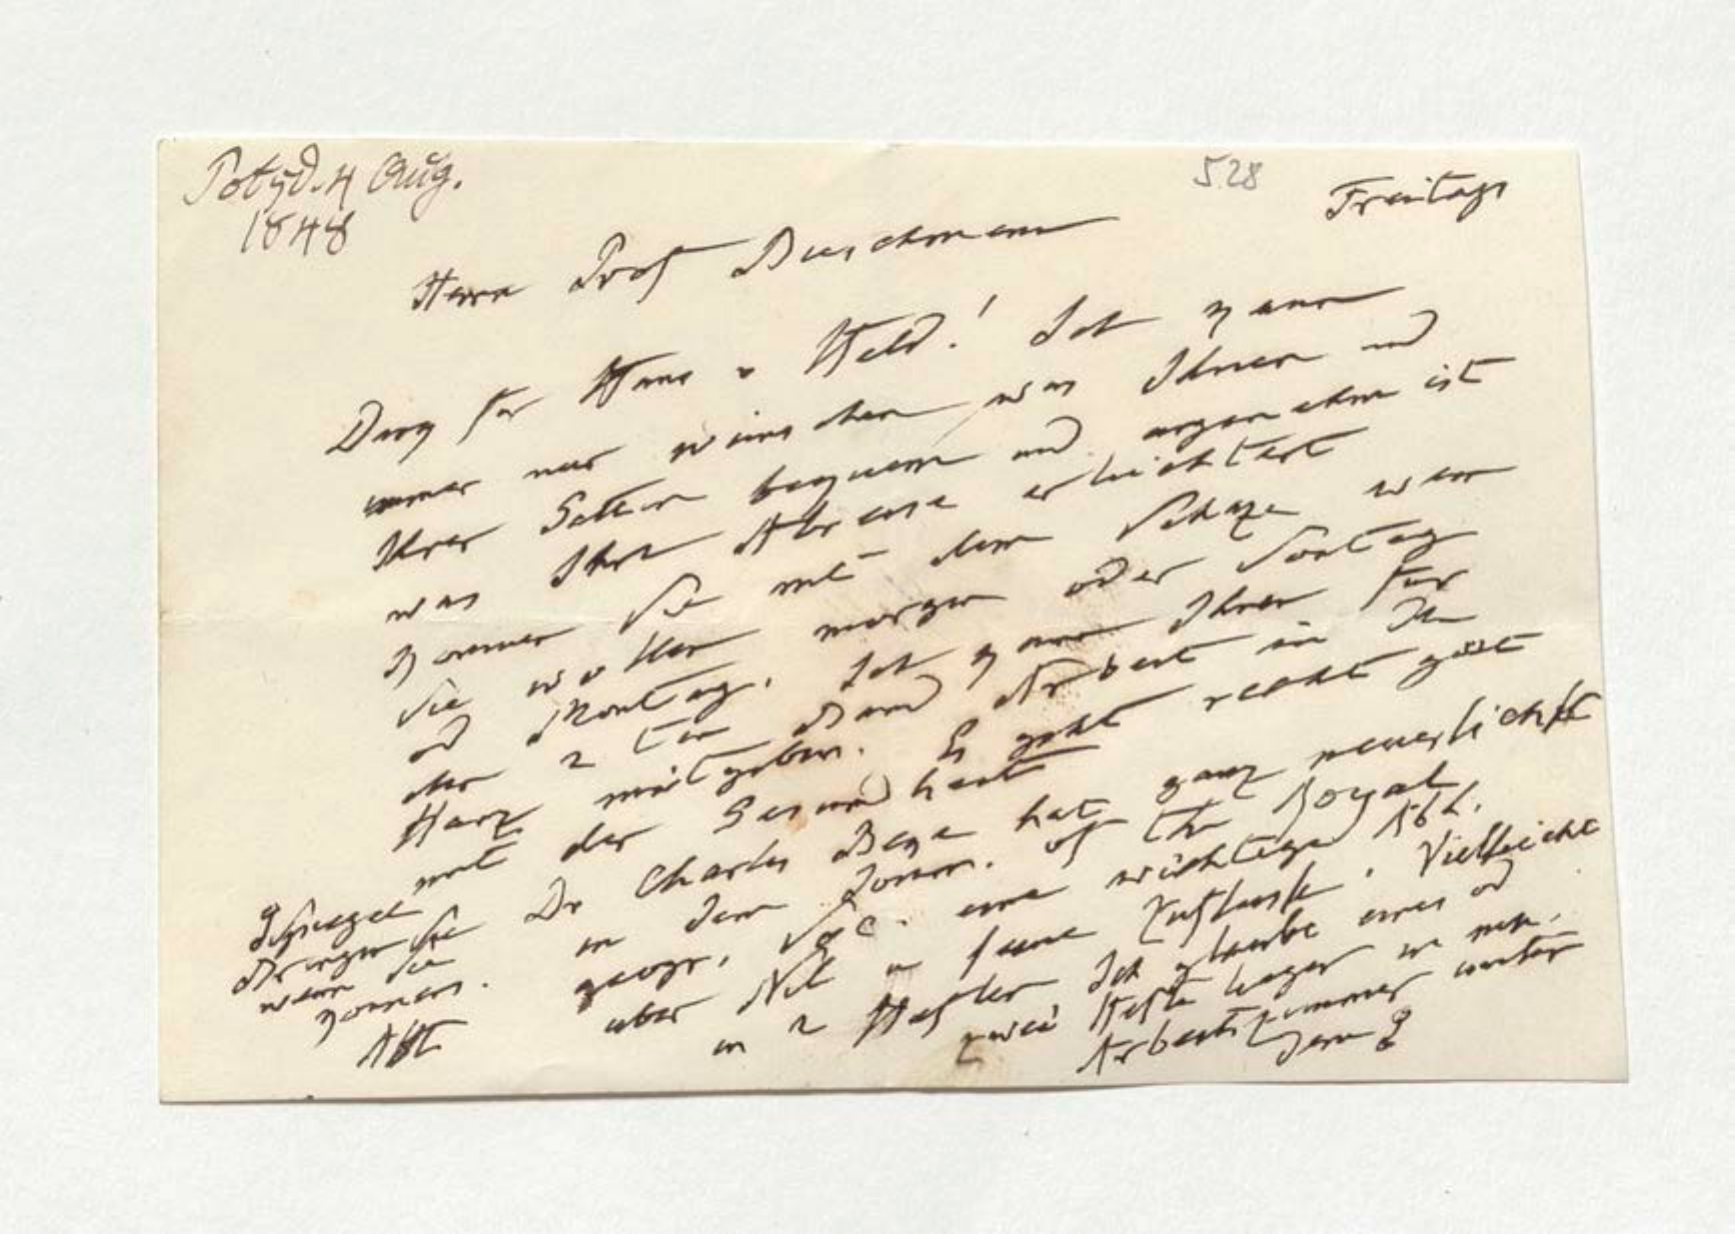 Potsd. 4 Aug.
1848
528
Freitags
Herrn Prof Buschmann
Dank für Hans v Held! Ich kann
immer nur wünschen was Ihnen und
Ihrer Gattin bequem und angenehm ist
was Ihre Abreise erleichtert
kommen Sie mit dem Schaze wan
Sie wollen morgen oder Sontag
od Montag. Ich kann Ihnen für
den 2 ten Band Arbeit in den
Harz mitgeben. Es geht recht gut
mit der Gesundheit
Dr Charles Beke hat ganz neuerlichst
in dem Journ. of the Royal
geogr. Soc. eine wichtige Abh.
über Nil u seine Zuflüsse. Vielleicht
in 2 Heften Ich glaube eines od
zwei Hefte liegen in mein.
Arbeitszimmer unter
dem
Bringen Sie
wenn Sie
kommen.
AHt